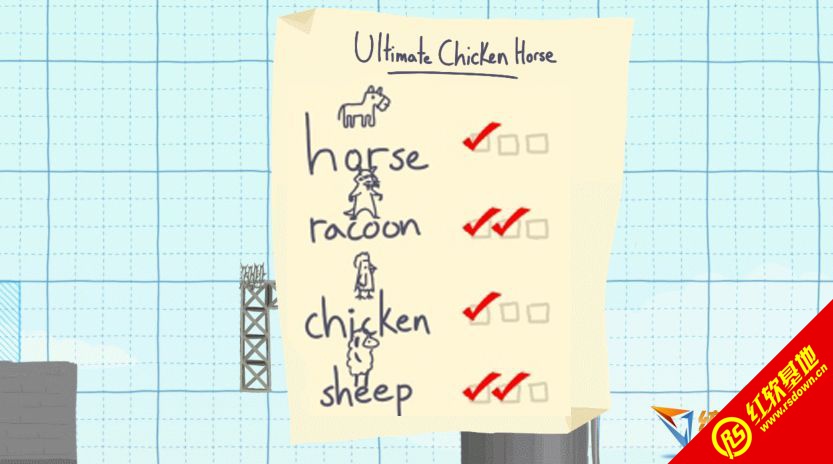 Ultimate Chicken Horse
horse
racoon
chicken
sheep
RS
红软基地
www.rsdown.cn